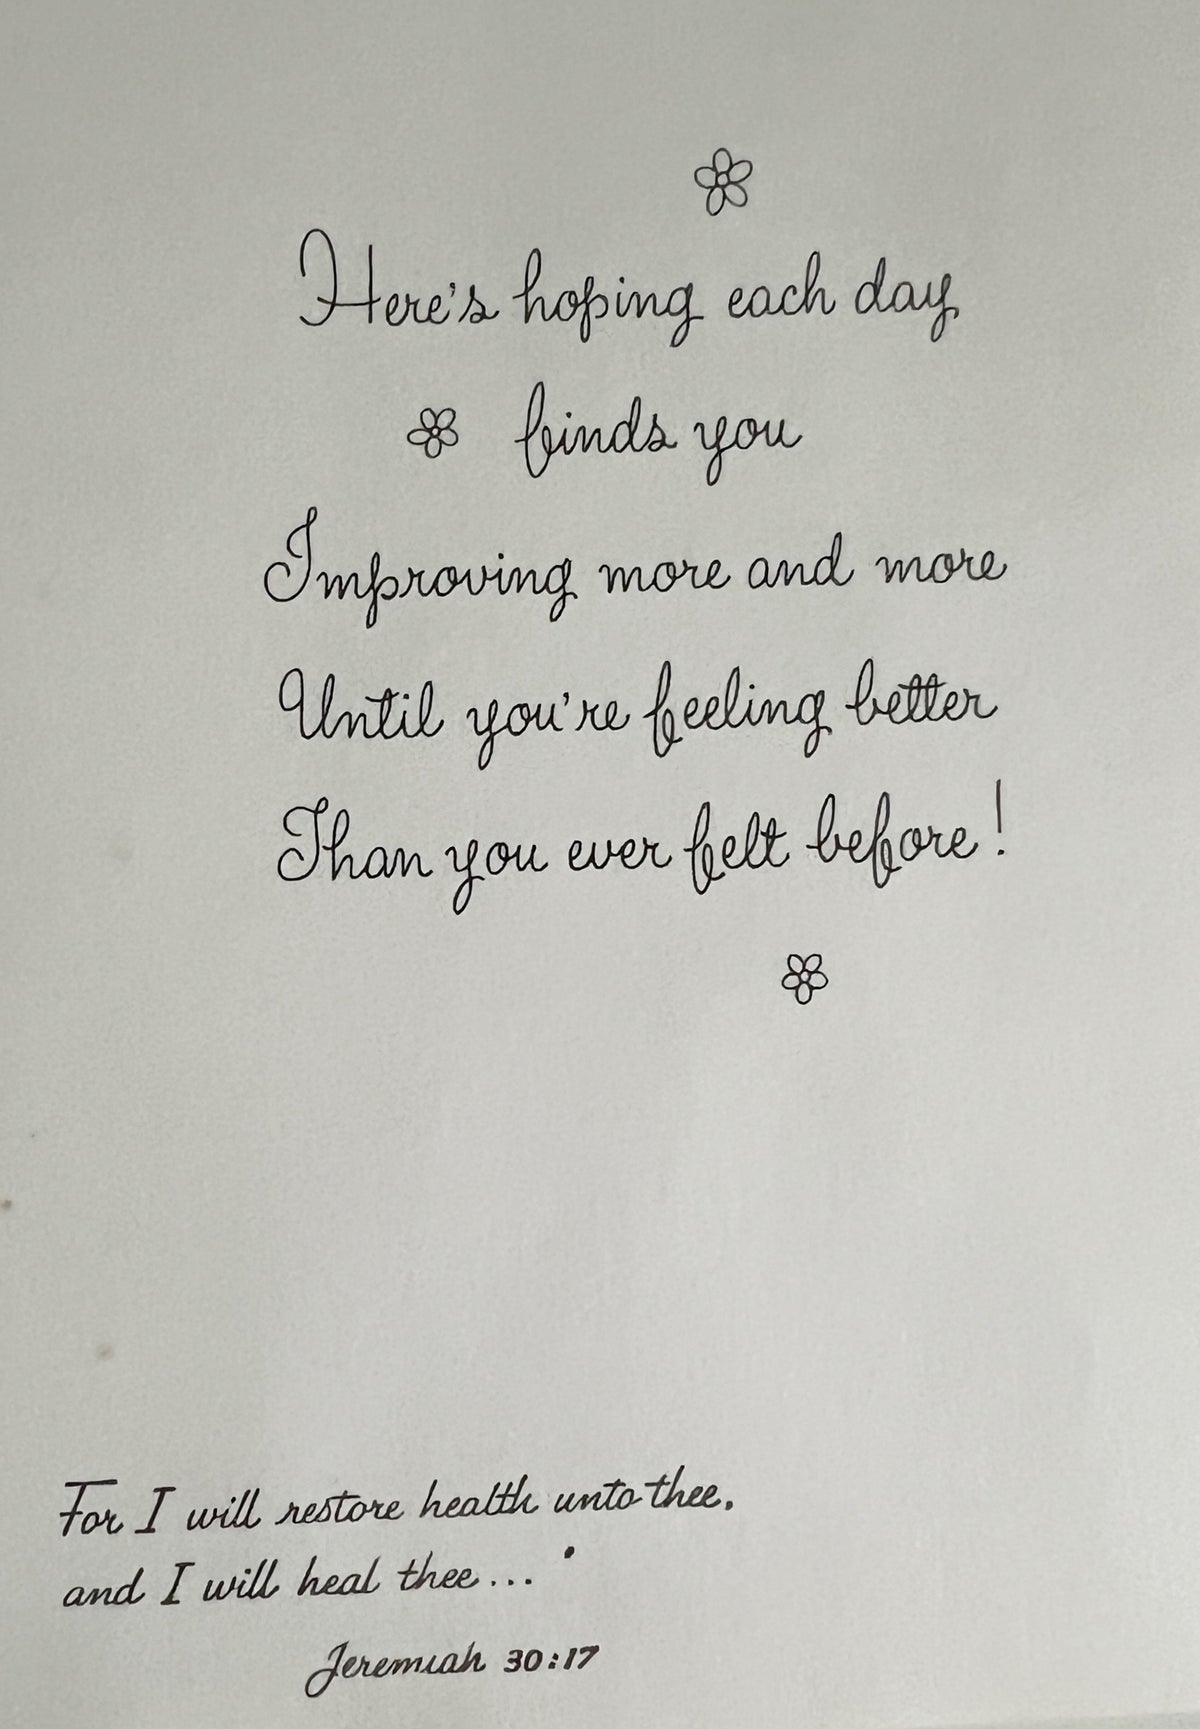 Here's hoping each day
finds you
Improving more and more
Until you're feeling better
Than you ever felt before!
For I will restore health unto thee.
and I will heal thee...
Jeremiah 30:17